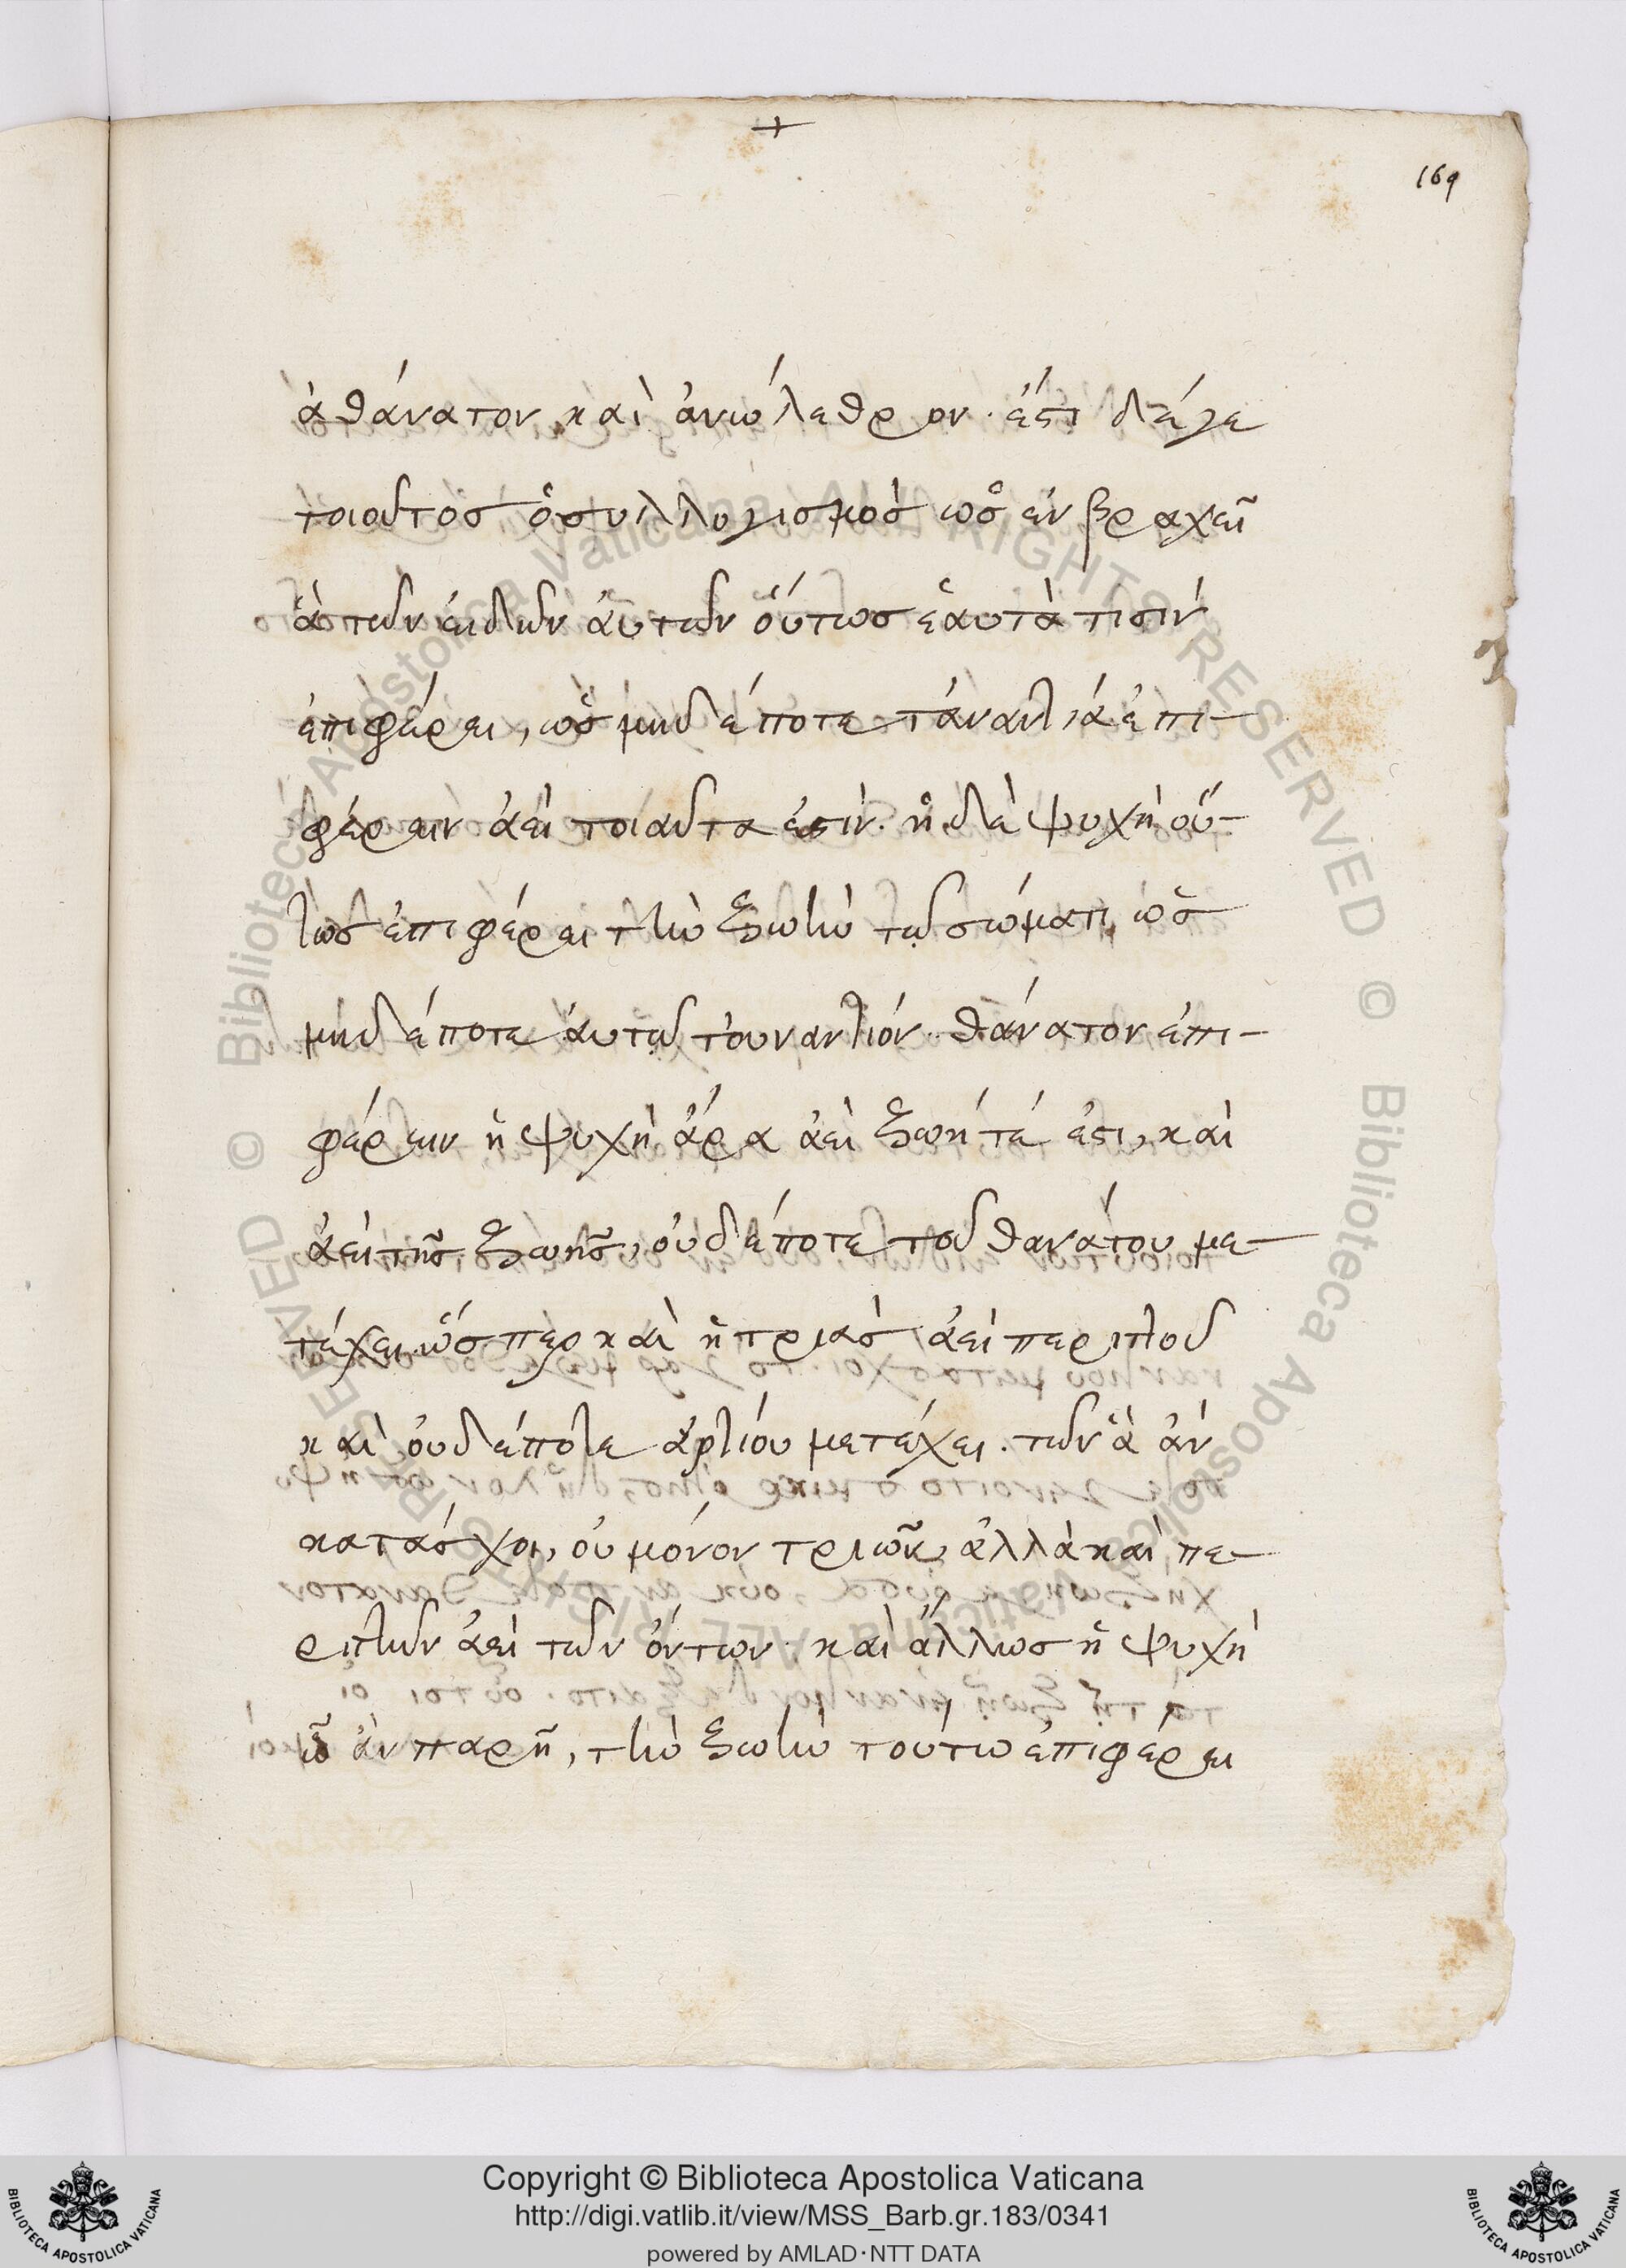 169
ἀθάνατον καὶ ἀνώλεθρον· ἔστι δέ γε
τοιοῦτος ὁ συλλογισμὸς ὡς ἐν βραχεῖ
ἃ τῶν εἰδῶν αὐτῶν οὕτως ἑαυτὰ τισὶν
ἐπιφέρει, ὡς μηδέποτε τἀναντία ἐπι-
φέρειν ἀεὶ τοιαῦτα ἐστίν· ἡ δὲ ψυχὴ οὕ-
τως ἐπιφέρει τὴν ζωὴν τῷ σώματι, ὡς
μηδέποτε αὐτῷ τοὐναντίον θάνατον ἐπι-
φέρειν ἡ ψυχὴ ἄρα ἀεὶ ζωή τέ ἐστι, καὶ
ἀεὶ τῆς ζωῆς, οὐδέποτε τοῦ θανάτου με-
τέχει· ὥσπερ καὶ ἡ τριὰς ἀεὶ περιττοῦ
καὶ οὐδέποτε ἀρτίου μετέχει· τῶν ἃ ἂν
κατάσχοι, οὐ μόνον τριῶν, ἀλλὰ καὶ πε-
ριττῶν ἀεὶ τῶν ὄντων· καὶ ἄλλως ἡ ψυχὴ
ᾧ ἂν παρῇ, τὴν ζωὴν τούτω ἐπιφέρει
Copyright © Biblioteca Apostolica Vaticana
http://digi.vatlib.it/view/MSS_Barb.gr.183/0341
powered by AMLAD·NTT DATA
BIBLIOTECA APOSTOLICA VATICANA
BIBLIOTECA APOSTOLICA VATICANA
© Biblioteca Apostolica Vaticana ALL RIGHTS RESERVED
© Biblioteca Apostolica Vaticana ALL RIGHTS RESERVED